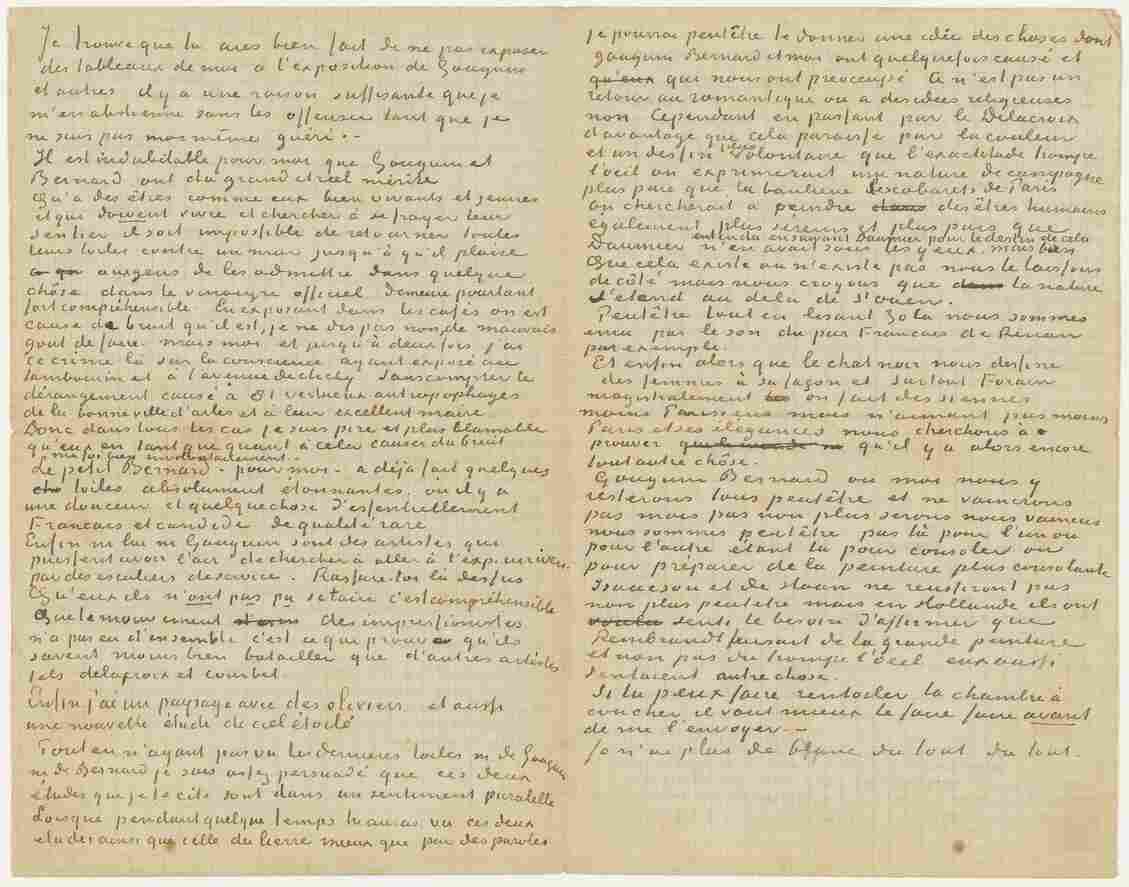 Je trouve que tu aies bien fait de ne pas exposer
des tableaux de moi à l'exposition de Gauguin
et autres il y a une raison suffisante que je
m'en abstienne sans les offenser tant que je
ne suis pas moi-même guéri. -
Il est indubitable pour moi que Gauguin et
Bernard ont du grand et réel mérite
Qu'à des êtres comme eux bien vivants et jeunes
et qui doivent vivre et chercher à se frayer leur
sentier il soit impossible de retourner toutes
leurs toiles contre un mur jusqu'à qu'il plaise
aux gens de les admettre dans quelque
chôse dans le vinaigre officiel demeure pourtant
fort compréhensible. En exposant dans les cafés on est
cause de bruit qu'il est, je ne dis pas non, de mauvais
gout de faire. mais moi et jusqu'à deux fois j'ai
ce crime là sur la conscience ayant exposé au
Tambourin et à l'avenue de clichy. Sans compter le
dérangement causé à 81 vertueux antropophages
de la bonne ville d'arles et à leur excellent maire
Donc dans tous les cas je suis pire et plus blamable
qu'eux en tant que quant à cela causer du bruit
ma foi bien involontairement. -
Le petit Bernard - pour moi - a déjà fait quelques
toiles absolument étonnantes, où il y a
une douceur et quelque chose d'essentiellement
Francais et candide de qualité rare
Enfin ni lui ni Gauguin sont des artistes qui
puissent avoir l'air de chercher à aller à l'exp. univers.
par des escaliers de service. Rassure-toi là dessus
Qu'eux ils n'ont pas pu se taire c'est compréhensible
Que le mouvement des impressionistes
n'a pas eu d'ensemble c'est ce qui prouve qu'ils
savent moins bien batailler que d'autres artistes
tels delacroix et courbet.
Enfin j'ai un paysage avec des oliviers et aussi
une nouvelle étude de ciel étoilé
Tout en n'ayant pas vu les dernieres toiles ni de Gauguin
ni de Bernard je suis assez persuadé que ces deux
études que je te cite sont dans un sentiment parallelle
Lorsque pendant quelque temps tu auras vu ces deux
etudes ainsi que celle du lierre mieux que par des paroles
je pourrai peutêtre te donner une idée des choses dont
Gauguin Bernard et moi ont quelquefois causé et
qui nous ont préoccupé Ce n'est pas un
retour au romantique ou à des idées religieuses
non. Cependant en passant par le Delacroix
d'avantage que cela paraisse par la couleur
et un dessin plus volontaire que l'exactitude trompe
l'oeil on exprimerait une nature de campagne
plus pure que la banlieue les cabarets de Paris
On chercherait à peindre des êtres humains
egalement plus sereins et plus purs que
Daumier n'en avait sous les yeux. mais bien
entendu en suivant Daumier pour le dessin de cela
Que cela existe ou n'existe pas nous le laissons
de côté mais nous croyons que la nature
s'etend au delà de St ouen.
Peutêtre tout en lisant Zola nous sommes
emu par le son du pur Francais de Renan
par exemple.
Et enfin alors que le chat noir nous dessine
des femmes à sa façon et surtout Forain
magistralement on fait des siennes
moins Parisiens mais n'aimant pas moins
Paris et ses élégances nous cherchons à
prouver qu'il y a alors encore
tout autre chôse.
Gauguin Bernard ou moi nous y
resterons tous peutêtre et ne vaincrons
pas mais pas non plus serons nous vaincus
nous sommes peutêtre pas là pour l'un ou
pour l'autre étant là pour consoler ou
pour préparer de la peinture plus consolante
Isaacson et de Haan ne reussiront pas
non plus peutetre mais en Hollande ils ont
senti le besoin d'affirmer que
Rembrandt faisait de la grande peinture
et non pas du trompe l'oeil eux aussi
sentaient autre chose.
Si tu peux faire rentoiler la chambre à
coucher il vaut mieux le faire faire avant
de me l'envoyer. -
Je n'ai plus de blanc du tout du tout.